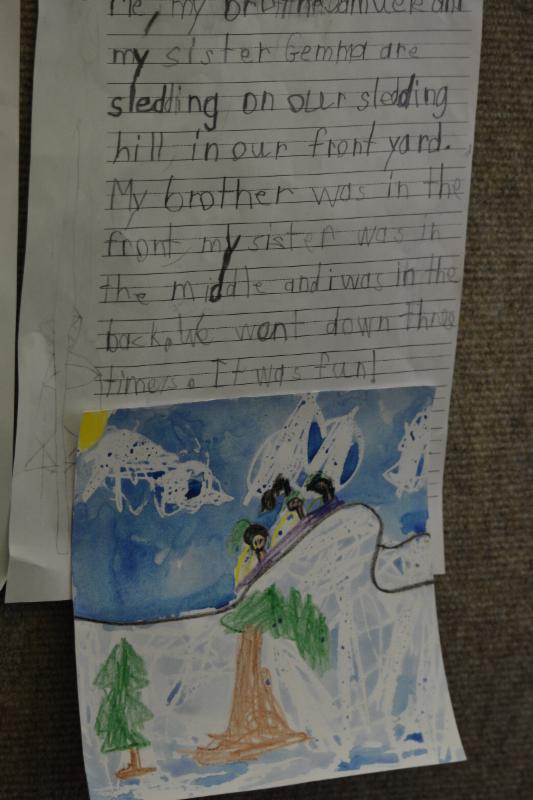 Me, my brother Samuel and
my sister Gemma are
sledding on our sledding
hill in our front yard.
My brother was in the
front my sister was in
the middle and i was in the
back. We went down three
timers. It was fun!